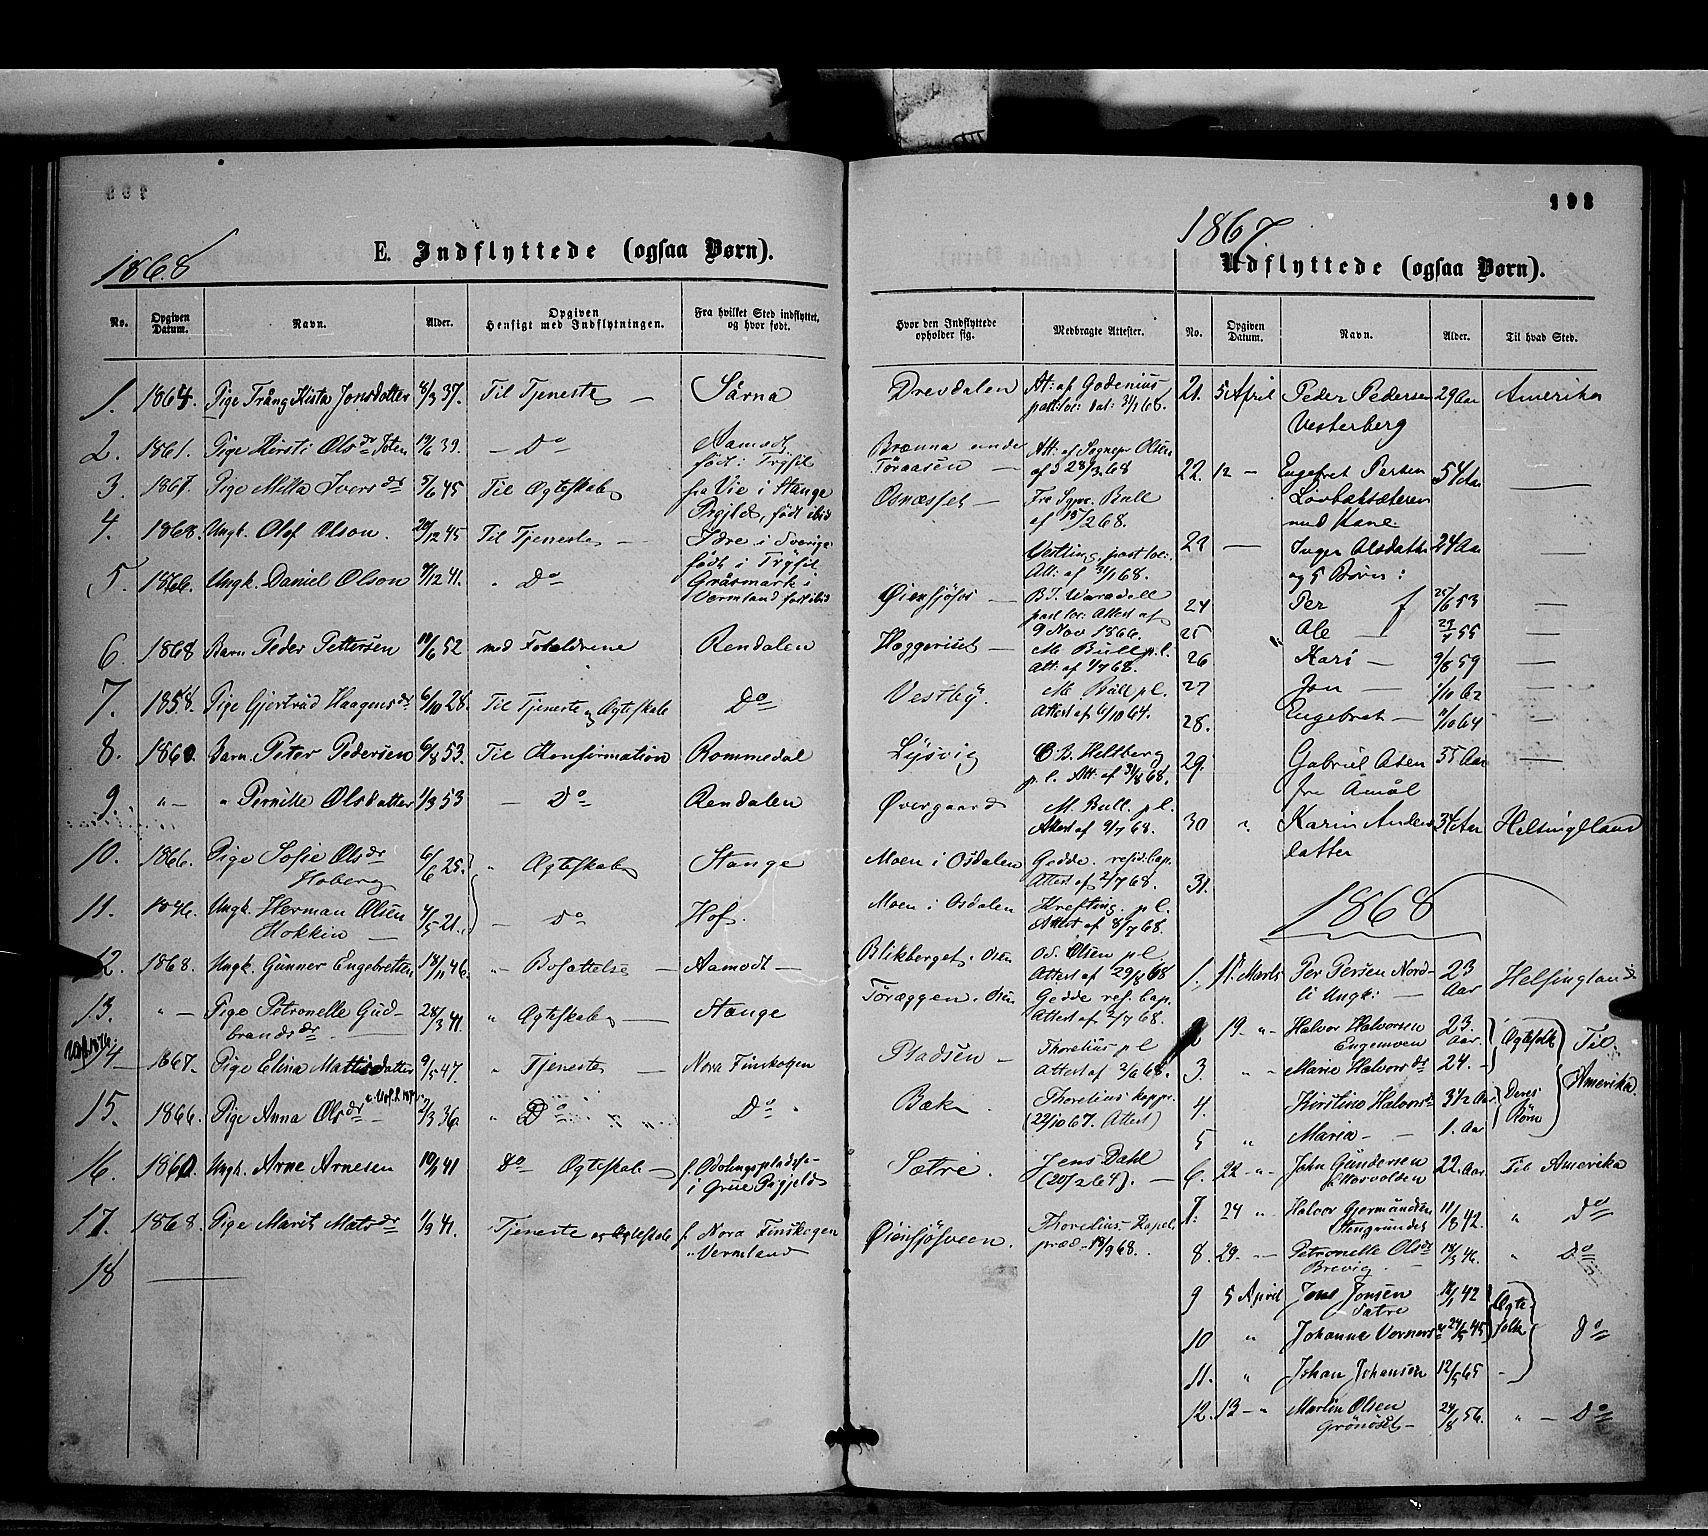 193
1868
E. Indflyttede (ogsaa Børn).
No.
Opgiven Datum.
Navn.
Alder.
Opgiven Hensigt med Indflytningen.
Fra hvilket Sted indflyttet, og hvor født.
Hvor den Indflyttede opholder sig.
Medbragte Attester.
1. 1864. Pige Trång Kista Jonsdatter 8/3 37. Til Tjeneste — Särna Drevdalen Att: af Godenius
past: loc: dat: 3/1 68.
2. 1861. Pige Kirsti Olsdr 39. — Do Aamodt Brænna under Att: af Sognepr Olsen
født i Trysil Töraasen — af d 28/3 68
3. 1867. Pige Mella Iversdr 5/6 45 Til Ægteskab fra Vie i Stange Osnæsset — Fra Sgpr. Bull
Prgjld, født ibid af 15/2 68.
4. 1868. Ungk. Olof Olson. 28/12 45 Til Tjeneste — Idre i Sverige Vestling past loc:
født i Trysil Att: af 31/1 68.
5. 1866. Ungk. Daniel Olson 9/12 41. " Do Gräsmark i Øiensjøfos — past loc. Attest af
Vermland født ibid 9 Nov 1866.
6. 1868 Barn Peder Pettersen 10/6 52 med Forældrene Rendalen Haggeriset — M. Bull p. l.
Att: af 4/7 68.
7. 1858. Pige Gjertrud Haagensdr 6/10 28. Til Tjeneste og Ægteskab Do Vestby. M. Bull p l.
Attest af 6/10 64.
8. 1860. Barn. Peter Pedersen 6/8 53. Til Konfirmation Rommedal Lysvig O B. Heltberg
p. l. Att af 31/8 68.
9. " — " Pernille Olsdatter 1/3 53 — Do Rendalen Øvergaard M. Bull. p l.
Attest af 9/7 68.
10. 1866. Pige Sofie Olsdr 6/6 25. " Ægteskab Stange Moen i Osdalen Gedde. resid. Cap.
Hoberg Attest af 2/7 68.
11. 1846. Ungk. Herman Olsen 4/5 21. — Do Hof. Moen i Osdalen Krefting. p l.
Hokkin — Attest af 8/7 68.
12. 1868. Ungk. Gunner Engebretsen 18/11 46. " Bosættelse — Aamodt — Blikberget. Osen Od. Olsen p l
Attest af 29/8 68
13. " — Pige Petronelle Gud- 28/3 41. " Ægteskab — Stange Töræggen. Osen Gedde res. Cap.
brandsdr. Attest af 2/7 68.
14 1867. Pige Elina Mattisdatter 9/5 47. " Tjeneste Nora Finskogen Pladsen — Thorelius p l
Attest af 3/6 68.
15. 1866. Pige Anna Olsdr — 2/3 36 " Do Do. Bæk. Thorelius kappr.
(29/10 67. Attest)
16. 1860. Ungk. Arne Arnesen 10/1 41 Do Ægteskab — f. Odalingspladse- Sætre. Jens Dahl
i Grue Prgjeld (20/2 64). —
17. 1868. Pige Marit Matsdr 1/9 41. Tjeneste og Ægteskab f. Nora Finskogen Øiensjøsveen. Thorelius Capel.
Vermland præd — 18/9 68.
18 —
1867
Udflyttede (ogsaa Børn).
No.
Opgiven Datum.
Navn.
Alder.
Til hvad Sted.
21. 5 April Peder Pedersen 29 Aar Amerika
Vesterberg
22. 12 — Engebret Persen 54 Aar —
Lövbætsæteren
med Kone
23 — Inger Olsdatter 24 Aar
og 5 Børn:
24 Per 25/6 53 —
25 Ole — 29/4 55 —
26 Kari — 9/8 59 —
27 Jon — 1/10 62
28. Engebret — 11/10 64 —
29. Gabriel Olsen 35 Aar —
fra Åmål
30 " Karin Anders 34 Aar Helsingland
datter
31.
1868
1. 17 Marts Per Persen Nord- 23 Helsingland
li Ungk: — Aar
2 19. " Halvor Halvorsen 23. Ægtefolk Til
Engemoen Aar.
3. " " Marie Halvorsdr 24. — Amerika
4. Kirstine Halvorsdr 3½ Aar Deres
5 " Maria — 1. Aar Børn
6. 22 — " John Gundersen 22. Aar Til Amerika
7. 24 " Halvor Germundsen 11/8 42. " Do
Stengrundet
8. 29. — Petronelle Olsdr 18/3 46. " Do
Brevig. —
9 5 April Jone Jonsen 14/1 42 Ægte
Sætre
10 " Johanne Vernersdr 24/5 45 folk Do
11. " Johan Johansen 12/5 65 —
12. 13 — " Martin Olsen 24/8 56. " — Do
Grönöset —